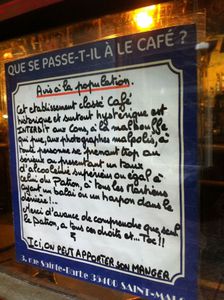 QUE SE PASSE-T-IL À LE CAFÉ ?
Avis à la population.
Cet établissement classé Café
historique et surtout hystérique est
INTERDIT aux Cons, à la malbouffe
qui pue, aux photographes malpolis, à
personne se prenant trop au
sérieux ou présentant un taux
d'alcoolémie supérieur ou égal à
celui du Patron, à tous les Martiens
ayant un balai ou un harpon dans le
derrière !..
Merci d'avance de comprendre que seul
le Patron, a tous ces droits et... Toc !!
Ici, ON PEUT APPORTER SON MANGER
3, rue Sainte-Barbe 35400 SAINT-MALO